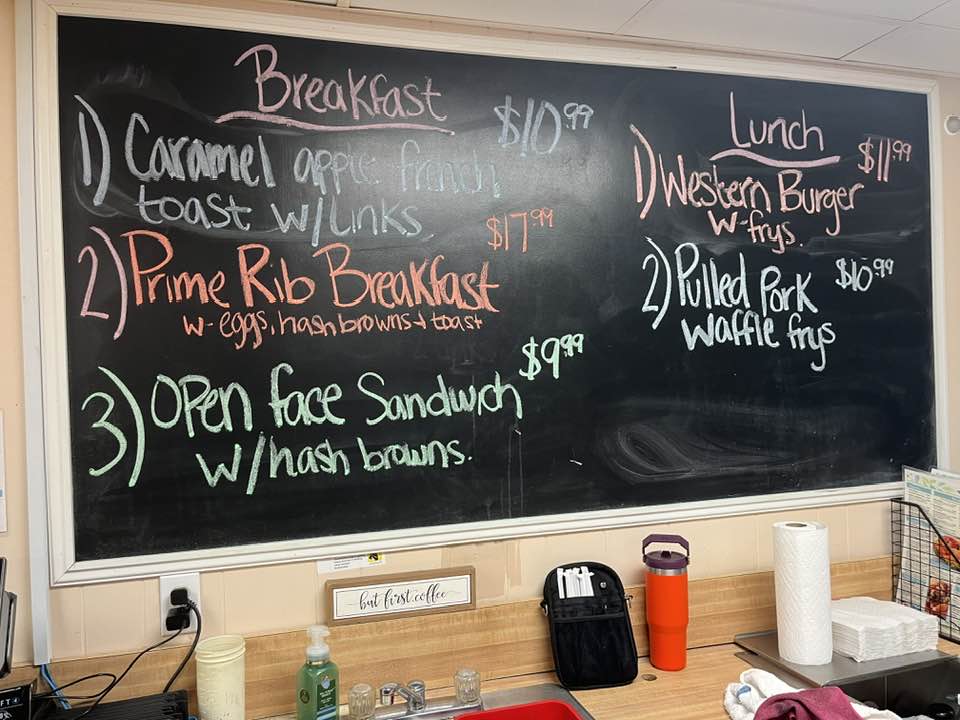 Breakfast
1) Caramel apple french $10.99
toast w/Links.
2) Prime Rib Breakfast $17.99
w-eggs, hash browns + toast
3) Open face Sandwich $9.99
w/hash browns.
Lunch
1) Western Burger $11.99
w-frys.
2) Pulled Pork $10.99
Waffle frys
but first, coffee